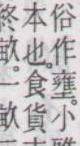 俗作壅。小雅
本也。食貨
終畝。一畝